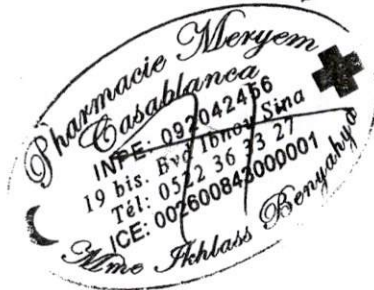 Pharmacie Meryem
Casablanca
INPE: 092042456
19 bis. Bvd Ibnou Sina
Tél: 0522 36 33 27
ICE: 002600843000001
Mme Ikhlass Benyahya